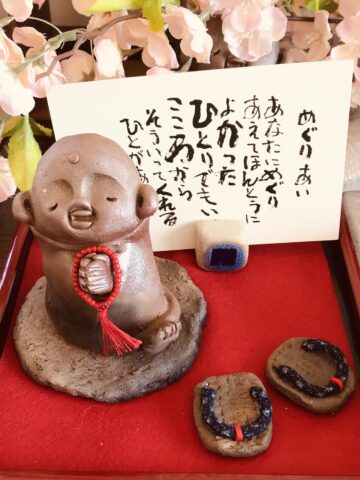 めぐりあい
あなたにめぐり
あえてほんとうに
よかった
ひとりでもいい
こころから
そういってくれる
ひとがあ